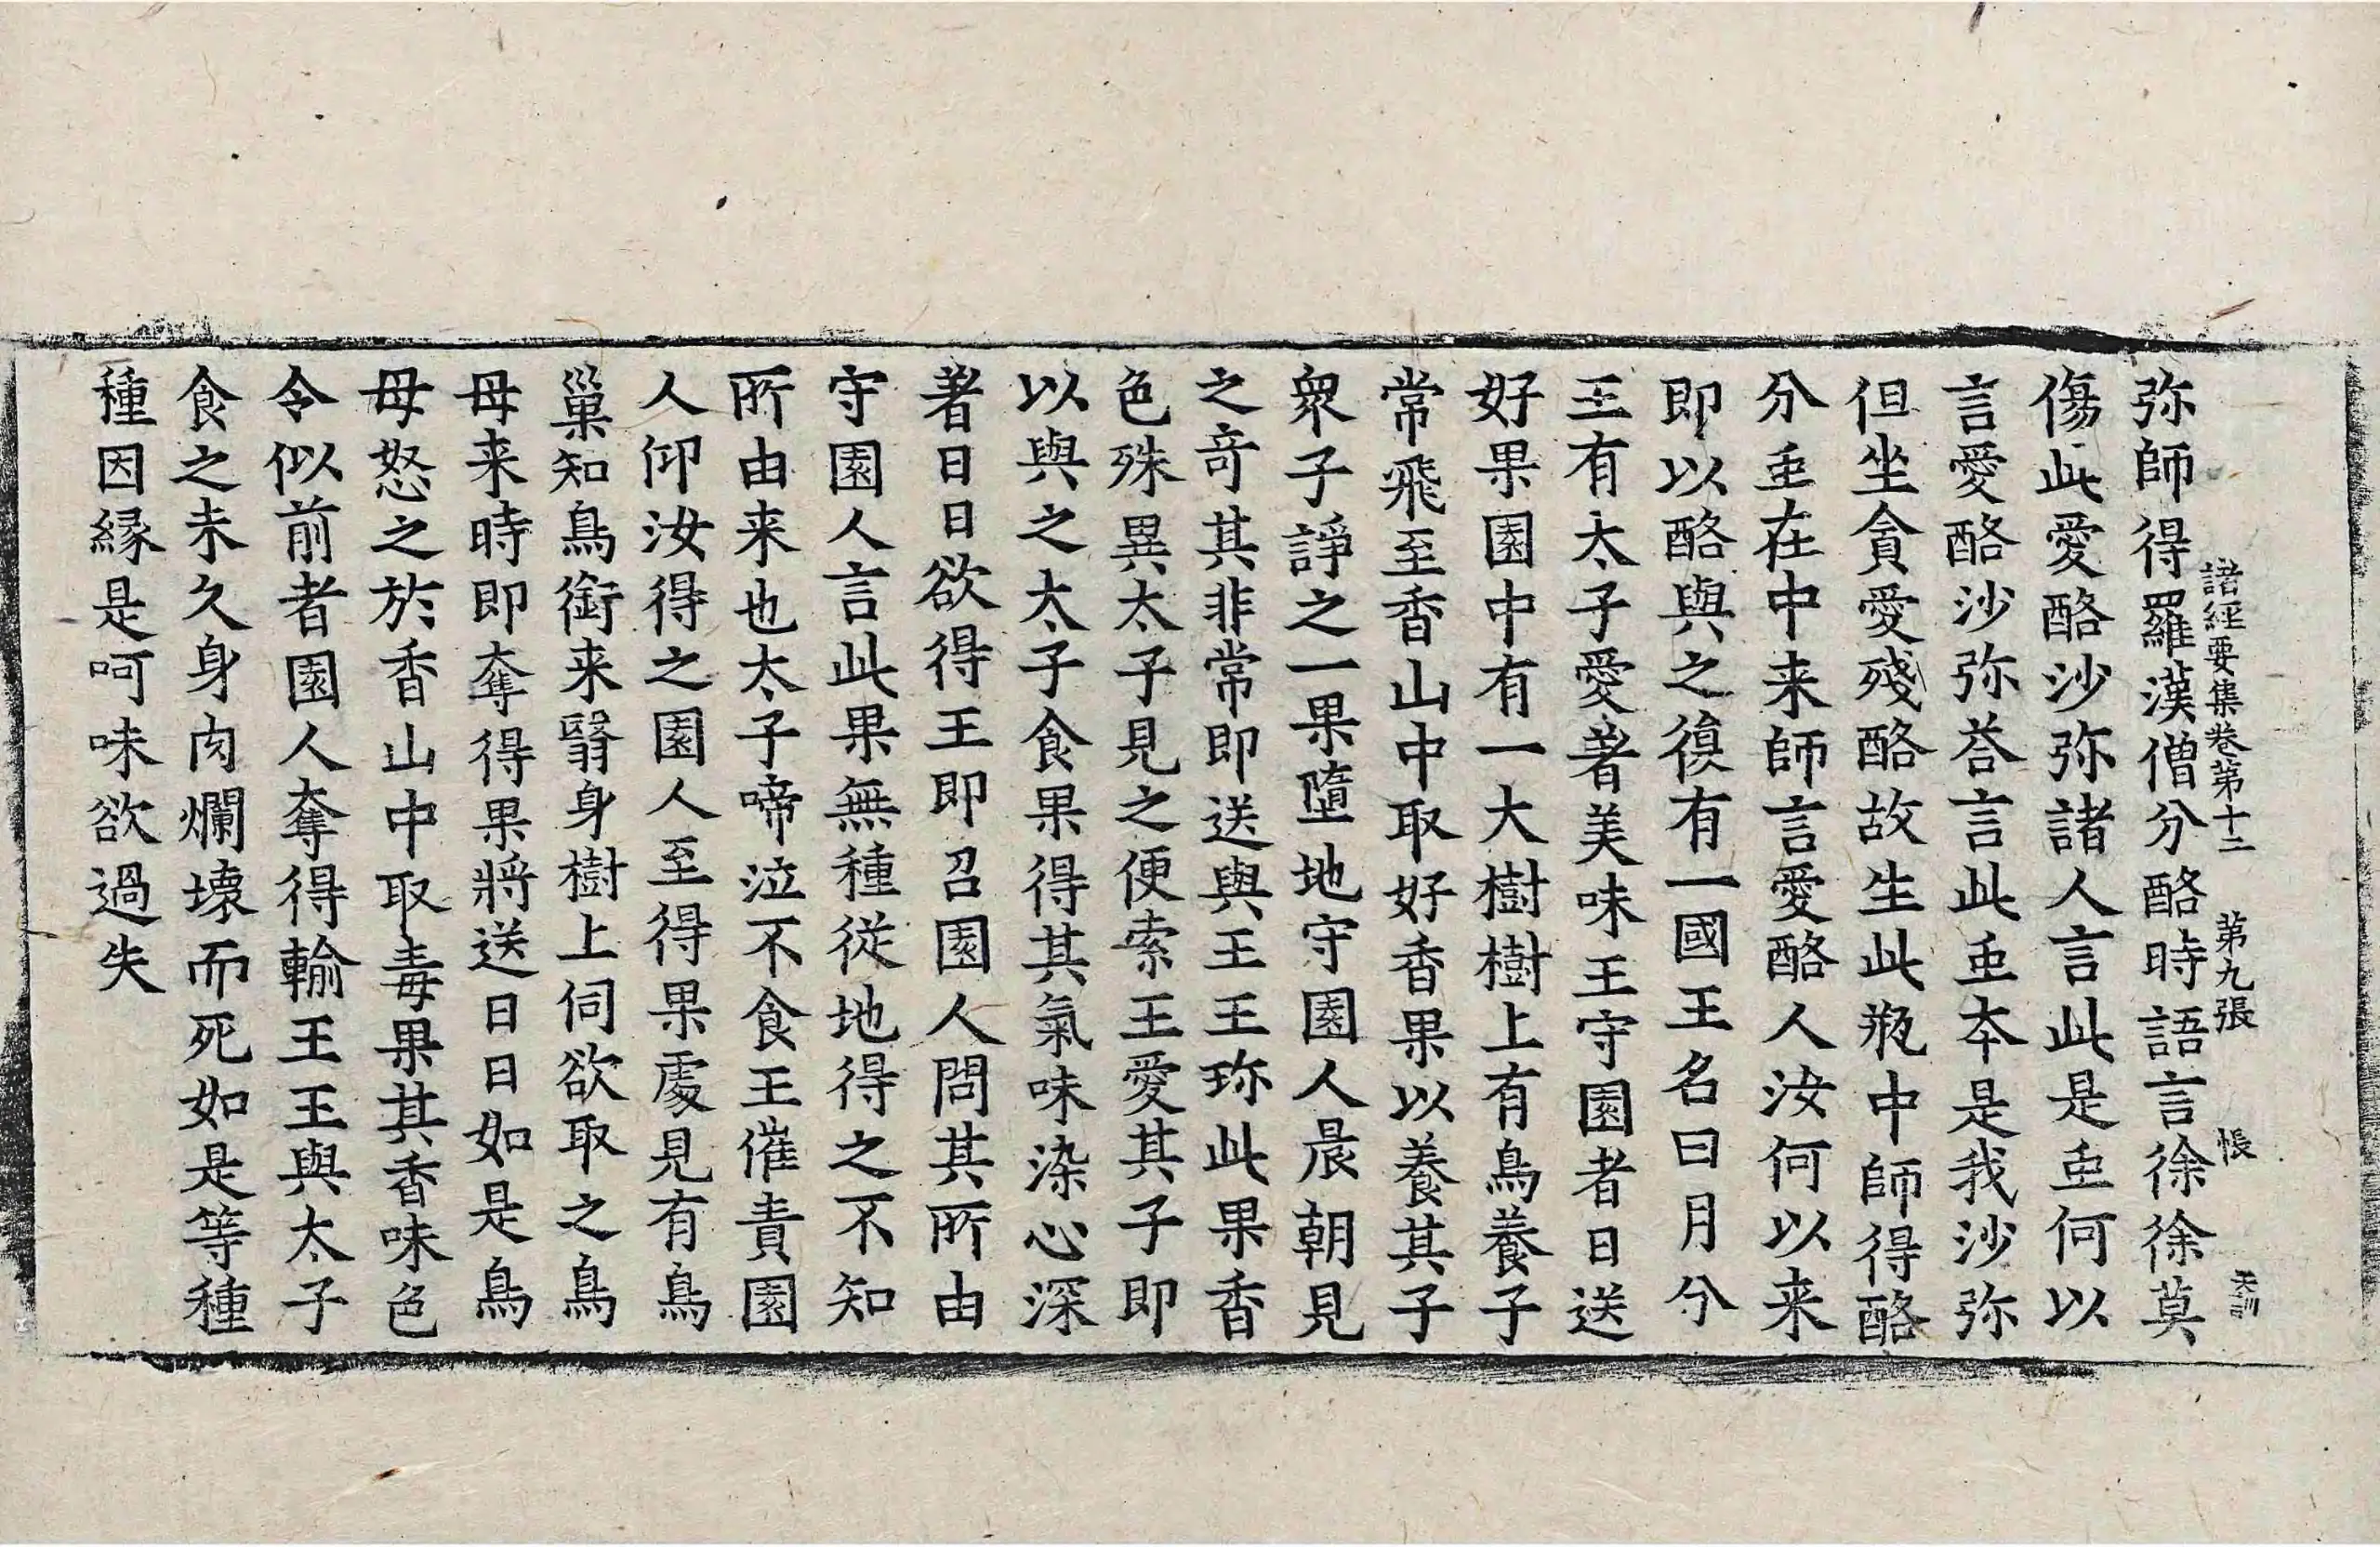 諸經要集卷第十二 第九張 悵 天訓
弥師得羅漢僧分酪時語言徐徐莫
傷此愛酪沙弥諸人言此是䖝何以
言愛酪沙弥荅言此䖝夲是我沙弥
但坐貪愛殘酪故生此瓶中師得酪
分䖝在中来師言愛酪人汝何以来
即以酪與之復有一國王名曰月分
王有太子愛著美味王守園者日送
好果園中有一大樹樹上有鳥養子
常飛至香山中取好香果以養其子
衆子諍之一果墮地守園人晨朝見
之竒其非常即送與王王珎此果香
色殊異太子見之便索王愛其子即
以與之太子食果得其氣味染心深
著日日欲得王即召園人問其所由
守園人言此果無種從地得之不知
所由来也太子啼泣不食王催責園
人仰汝得之園人至得果處見有鳥
巢知鳥銜来翳身樹上伺欲取之鳥
母来時即奪得果將送日日如是鳥
母怒之於香山中取毒果其香味色
令似前者園人奪得輸王王與太子
食之未久身肉爛壞而死如是等種
種因緣是呵味欲過失